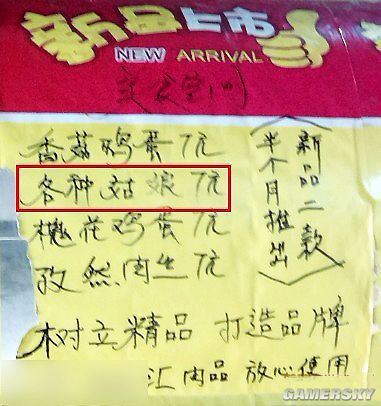 新品上市
NEW ARRIVAL
美食空间
香菇鸡蛋7元
各种姑娘7元
槐花鸡蛋7元
孜然肉丝7元
〈新品二款
半个月推出〉
树立精品 打造品牌
汇肉品 放心使用
GAMERSKY